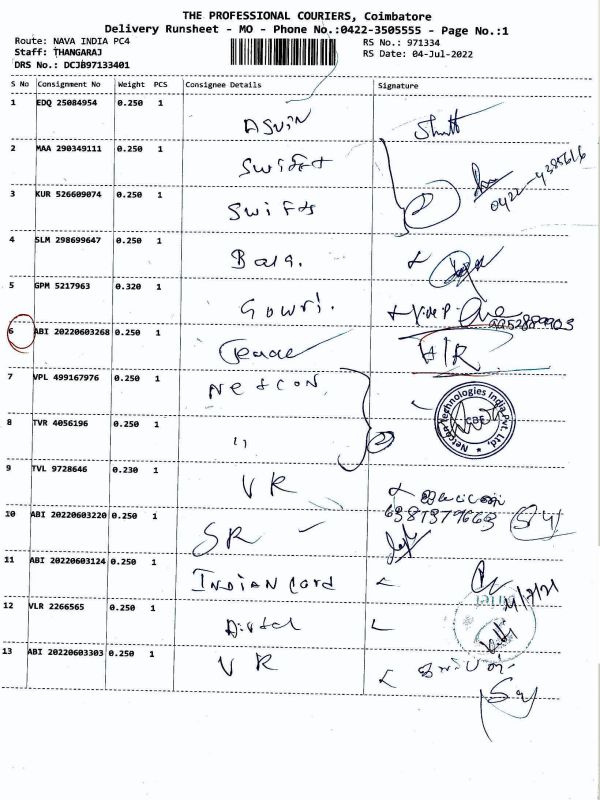 THE PROFESSIONAL COURIERS, Coimbatore
Delivery Runsheet - MO - Phone No.:0422-3505555 - Page No.:1
Route: NAVA INDIA PC4
Staff: THANGARAJ
DRS No.: DCJB97133401
RS No.: 971334
RS Date: 04-Jul-2022
S No Consignment No Weight PCS Consignee Details Signature
1 EDQ 25084954 0.250 1 ASWIN
2 MAA 290349111 0.250 1
0422-4385616
3 KUR 526609074 0.250 1
4 SLM 298699647 0.250 1 Bala.
5 GPM 5217963 0.320 1 Gowri.
6 ABI 20220603268 0.250 1
7 VPL 499167976 0.250 1 Netcon
Netcon Technologies India Pvt. Ltd.
CBE
8 TVR 4056196 0.250 1 "
9 TVL 9728646 0.230 1 VR
6381379663
10 ABI 20220603220 0.250 1 SR
11 ABI 20220603124 0.250 1 INDIAN Card
12 VLR 2266565 0.250 1
13 ABI 20220603303 0.250 1 VR